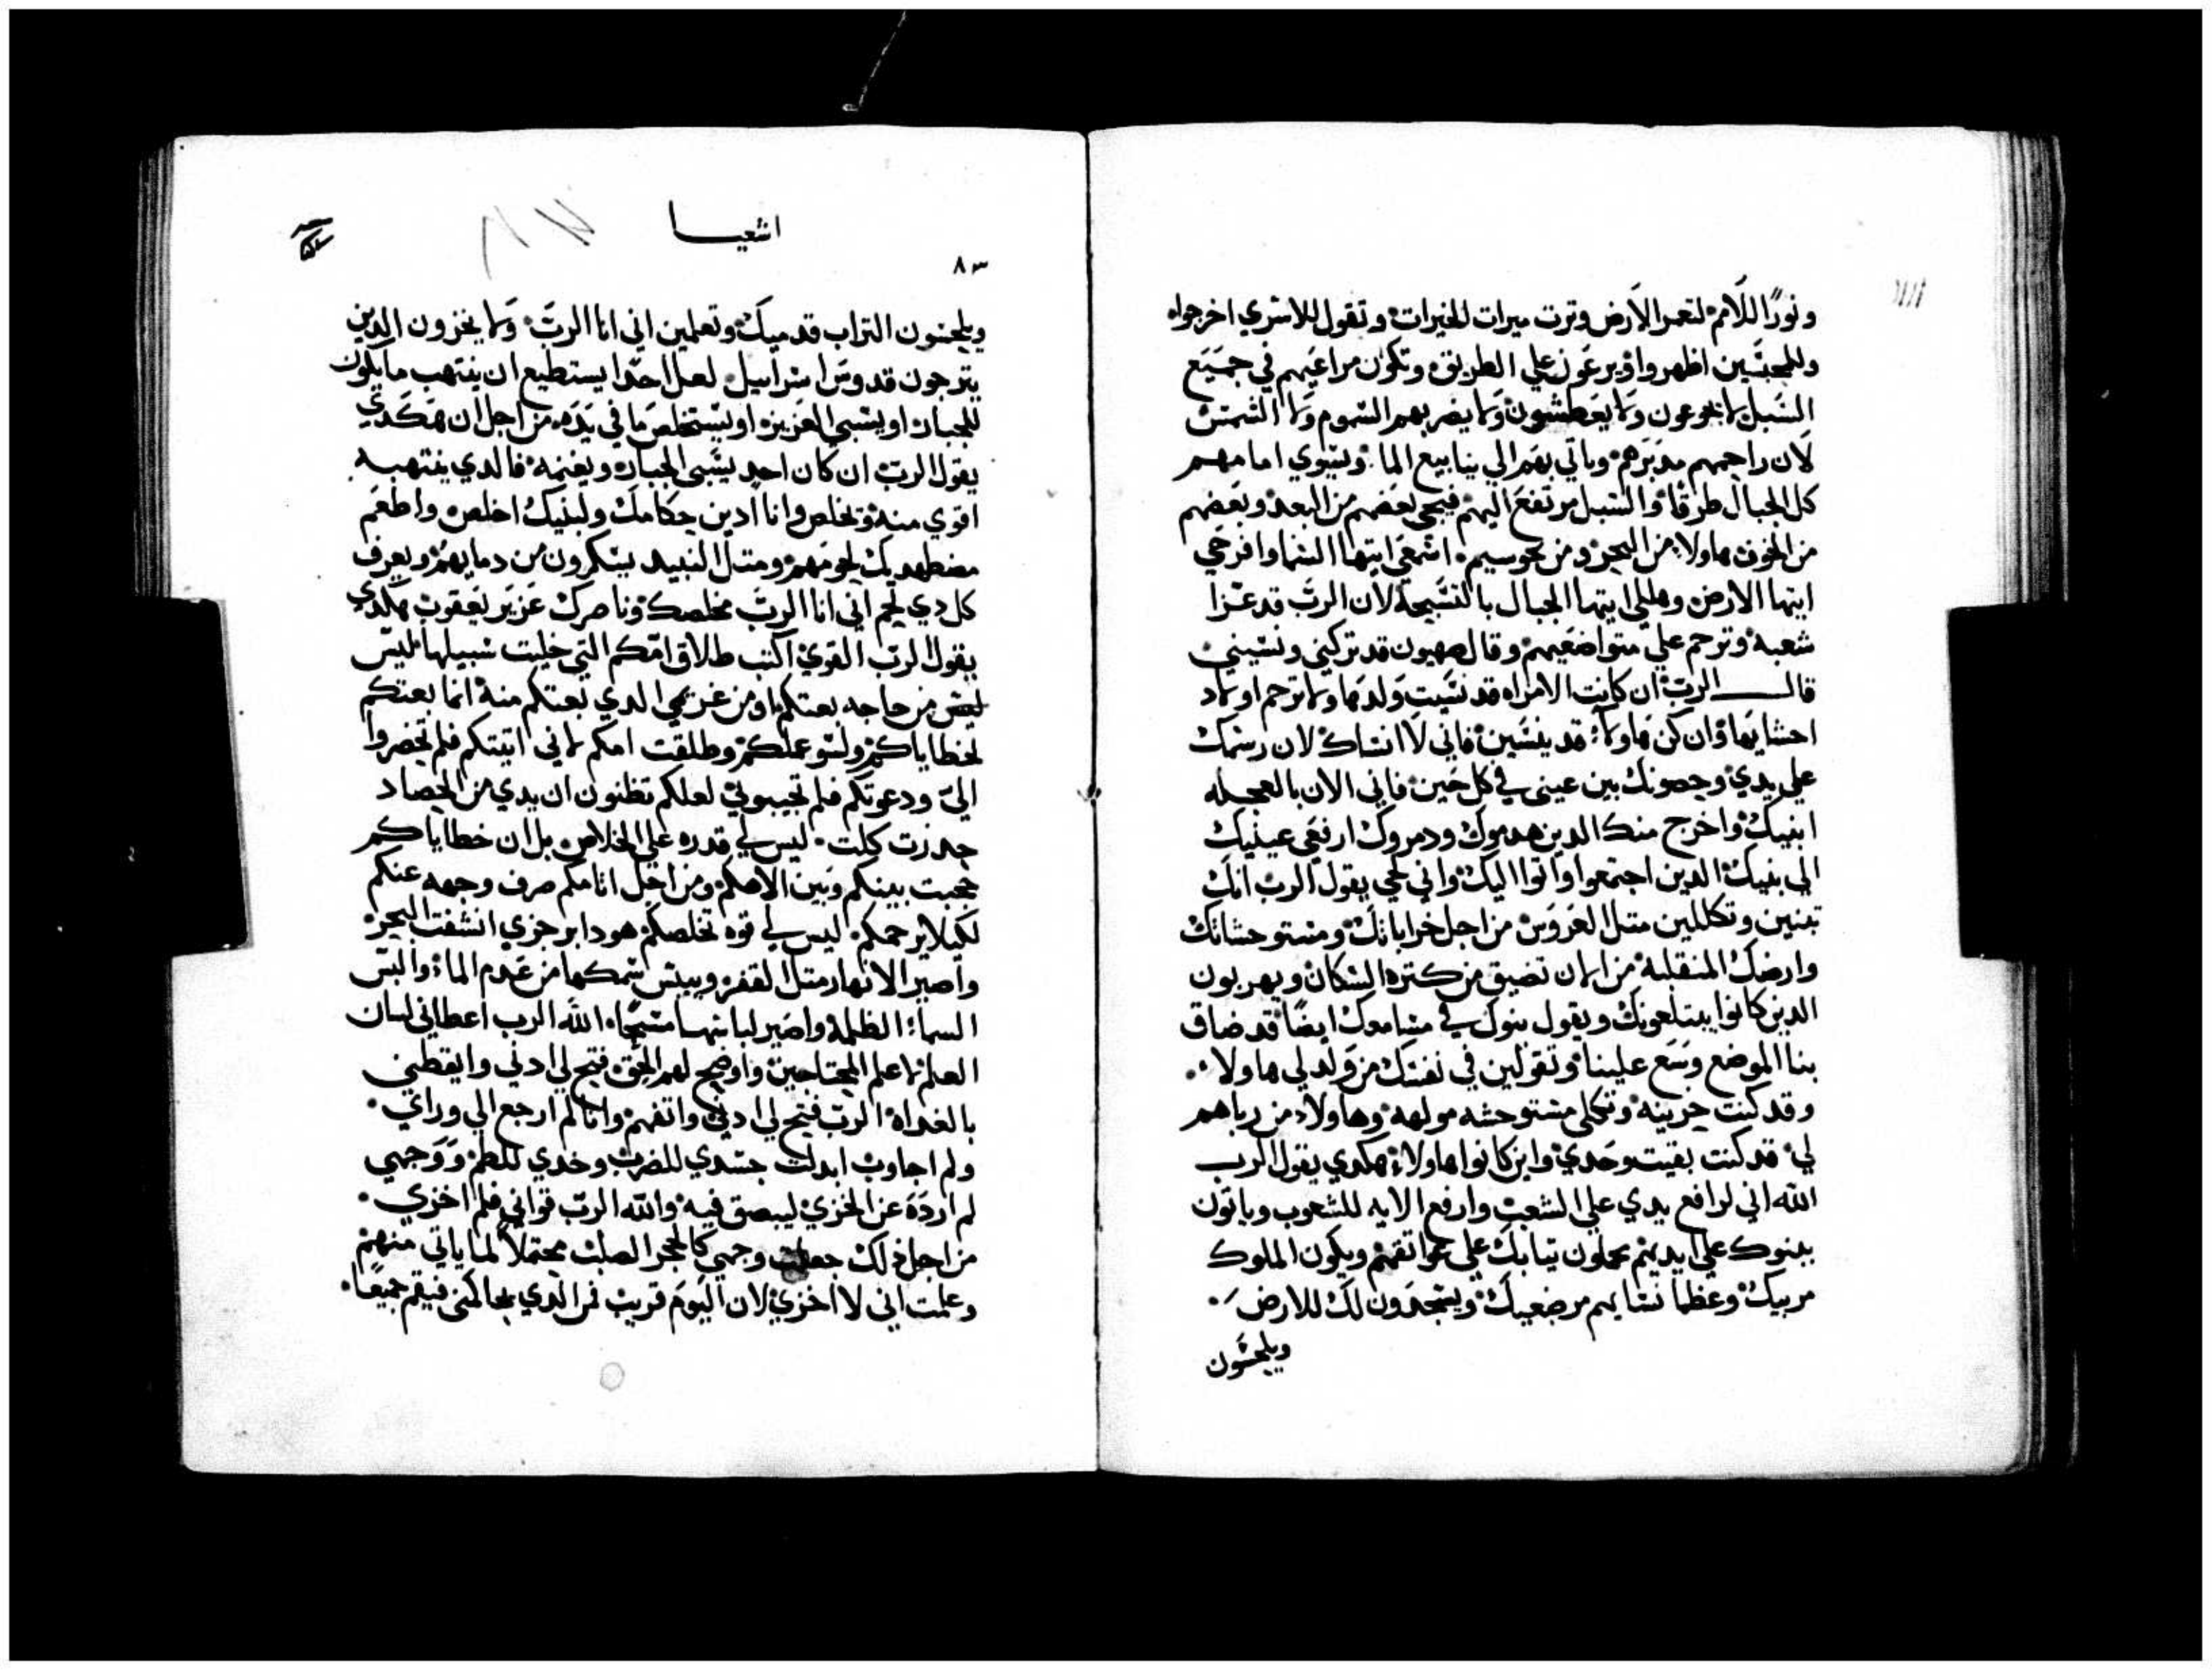 ونورًا للامم لتعمر الارض وترت ميرات الخيرات وتقول للاسري اخرجوا
وللمحبتسين اظهروا ويرعون علي الطريق وتكون مراعيهم في جميع
السبل لا يجوعون ولا يعطشون ولا يضربهم السموم ولا الشمس
لان راحمهم مدبرهم وياتي بهم الي ينابيع الما ويسوي امامهم
كل الجبال طرقا والسبل مرتفع اليهم فيجي بعضهم من البعد وبعضهم
من الجوف هاولا من البحر ومن نحو سيم اسمعي ايتها السما وافرحي
ايتها الارض وهللي ايتها الجبال بالتسبحة لان الرب قد عزا
شعبه وترحم علي متواضعيهم وقال صهيون قد تركني ونسيني
قال الرب ان كانت الامراه قد نسيت ولدها ولا ترحم اولاد
احشايها وان كن هاولاء قد ينسين فاني لا انساك لان رسمك
علي يدي وحصونك بين عيني في كل حين فاني الان بالعجله
ابنيك واخرج منك الدين هدموك ودمروك ارفعي عينيك
الي بنيك الدين اجتمعوا واتوا اليك واني لحي يقول الرب انك
تبنين وتكللين متل العروس من اجل خراباتك ومستوحشاتك
وارضك المنقلبة من الان تضيق من كتره السكان ويهربون
الدين كانوا يبتلعونك ويقول بنوك في مسامعك ايضًا قد ضاق
بنا الموضع وسع علينا وتقولين في نفسك من ولد لي هاولاء
وقد كنت حزينه وتكلي مستوحشه مولهه وهاولاء من رباهم
لي قد كنت بقيت وحدي واين كانوا هاولاء هكدي يقول الرب
الله اني لرافع يدي علي الشعب وارفع الايه للشعوب وياتون
ببنوك علي ايديهم يحملون تيابك علي عواتقهم ويكون الملوك
مربيك وعظما نسايهم مرضعيك ويسجدون لك للارض
ويلحسون
اشعيا
٨٣
ويلحسون التراب قدميك وتعلمين اني انا الرب ولا يخزون الدين
يترجون قدوس اسراييل لعل احدا يستطيع ان ينتهب ما يكون
للجبار او يسبي العزيز او يستخلص ما في يده من اجل ان هكدي
يقول الرب ان كان احد يسبي الجباره ويغنمه فالدي ينتهبه
اقوي منه وتخلص وانا ادين حكامك ولبنيك اخلص واطعم
مضطهديك لحومهم ومتل النبيد يسكرون من دمايهم ويعرف
كل دي لحم اني انا الرب مخلصك وناصرك عزيز يعقوب هكدي
يقول الرب القوي اكتب طلاق امكم التي خليت سبيلها ليس
من حاجه بعتكم او من غريمي الدي بعتكم منه انما بعتكم
لخطاياكم ولسو عملكم وطلقت امكم لاني اتيتكم فلم تحضروا
الي ودعوتكم فلم تجيبوني لعلكم تظنون ان يدي من الحصاد
جدرت كلت ليس لي قدره علي الخلاص بل ان خطاياكم
حجبت بينكم وبين الاهكم ومن اجل اتامكم صرف وجهه عنكم
لكيلا يرحمكم ليس لي قوه تخلصكم هودا بزجري انشفت البحر
واصير الانهار متل القفر وييبس سمكها من عدم الماء والبس
السماء الظلمة واصير لباسها مسحًا الله الرب اعطاني لسان
العلم لاعلم المحتاجين واوضح لهم الحق فتح لي ادني وايقظني
بالغداه الرب فتح لي ادني واتفهم وانا لم ارجع الي وراي
ولم اجاوب ابدلت جسدي للضرب وخدي للطم ووجهي
لم ارده عن الخزي ليبصق فيه والله الرب قواني فلم اخزي
من اجل دلك جعلت وجهي كالحجر الصلب محتملًا لما ياتي منهم
وعلمت اني لا اخزي لان اليوم قريب فمن الدي يحاكمني فيقم جميعًا